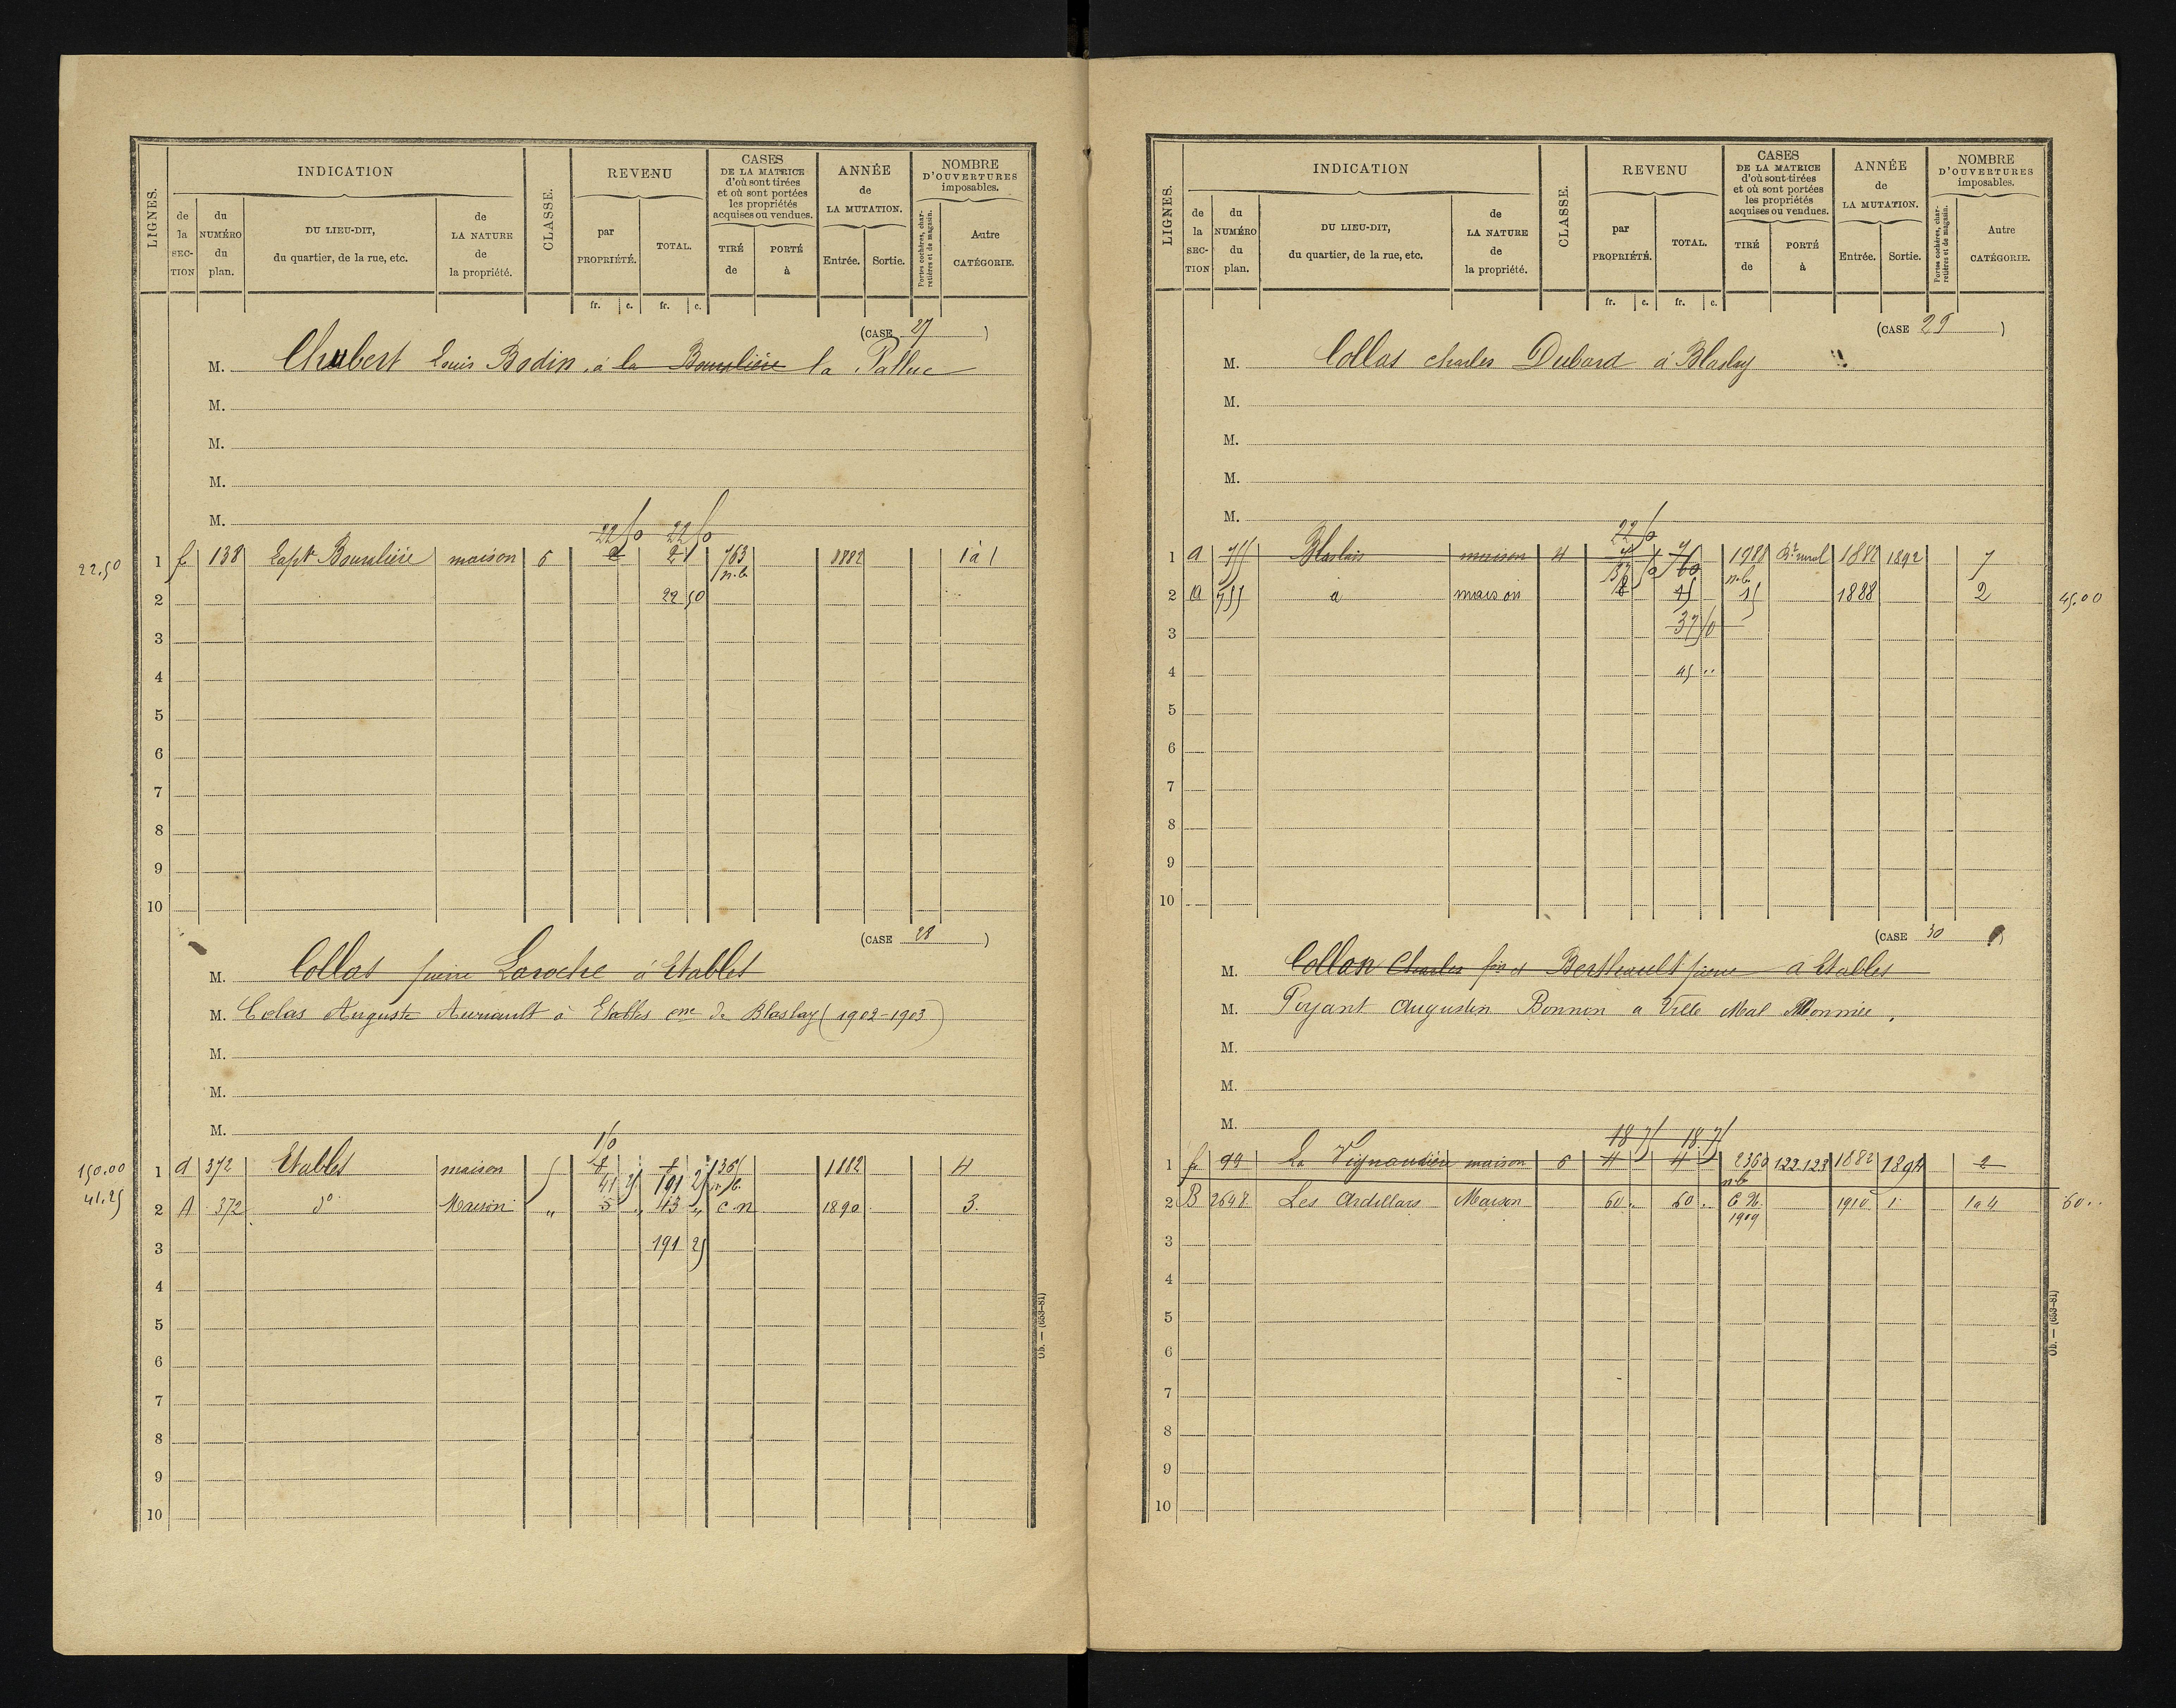 LIGNES.
INDICATION
de la SECTION
du NUMÉRO du plan.
DU LIEU-DIT, du quartier, de la rue, etc.
de LA NATURE de la propriété.
CLASSE.
REVENU
par PROPRIÉTÉ.
TOTAL.
fr. c. fr. c.
CASES DE LA MATRICE d'où sont tirées et où sont portées les propriétés acquises ou vendues.
TIRÉ de
PORTÉ à
ANNÉE de LA MUTATION.
Entrée. Sortie.
NOMBRE D'OUVERTURES imposables.
Portes cochères, charretières et de magasin.
Autre CATÉGORIE.
(CASE 27)
M. Chubert Louis Bodin, à la la Pallue
M.
M.
M.
M.
22 50 22 50
22.50 1 f 138 maison 6 763 1882 1 à 1
n.b.
2 22 50
3
4
5
6
7
8
9
10
(CASE 28)
M. Collas Laroche à Etables
M. Colas Auguste Auriault à Etables cne de Blaslay (1902-1903)
M.
M.
M.
150.00 1 a 372 Etables maison 5 1882 4
41 25 191 25 n.b.
41.25 2 A 372 do Maison " 5 " 43 " C n 1890 3.
3 191 25
4
5
6
7
8
9
10
Ob. — (653-81)
LIGNES.
INDICATION
de la SECTION
du NUMÉRO du plan.
DU LIEU-DIT, du quartier, de la rue, etc.
de LA NATURE de la propriété.
CLASSE.
REVENU
par PROPRIÉTÉ.
TOTAL.
fr. c. fr. c.
CASES DE LA MATRICE d'où sont tirées et où sont portées les propriétés acquises ou vendues.
TIRÉ de
PORTÉ à
ANNÉE de LA MUTATION.
Entrée. Sortie.
NOMBRE D'OUVERTURES imposables.
Portes cochères, charretières et de magasin.
Autre CATÉGORIE.
(CASE 29)
M. Collas Charles Dubard à Blaslay
M.
M.
M.
M.
22 50
1 a maison 4 1892 7
n.b.
2 a 755 maison 45 15 1888 2 45.00
3 37 50
4 45 ..
5
6
7
8
9
10
(CASE 30)
M. Charles Berthault à Etables
M. Poyant Augustin Bonnin a Ville Mal Nommée.
M.
M.
M.
18 75 18 75
1 f 99 La maison 6 4 4 2360 122.123 1882 1894 2
n.b.
2 B 2648 Les Ardillars Maison 60 .. 60 .. C N. 1910 1 1 a 4 60..
1909
3
4
5
6
7
8
9
10
Ob. — (653-81)